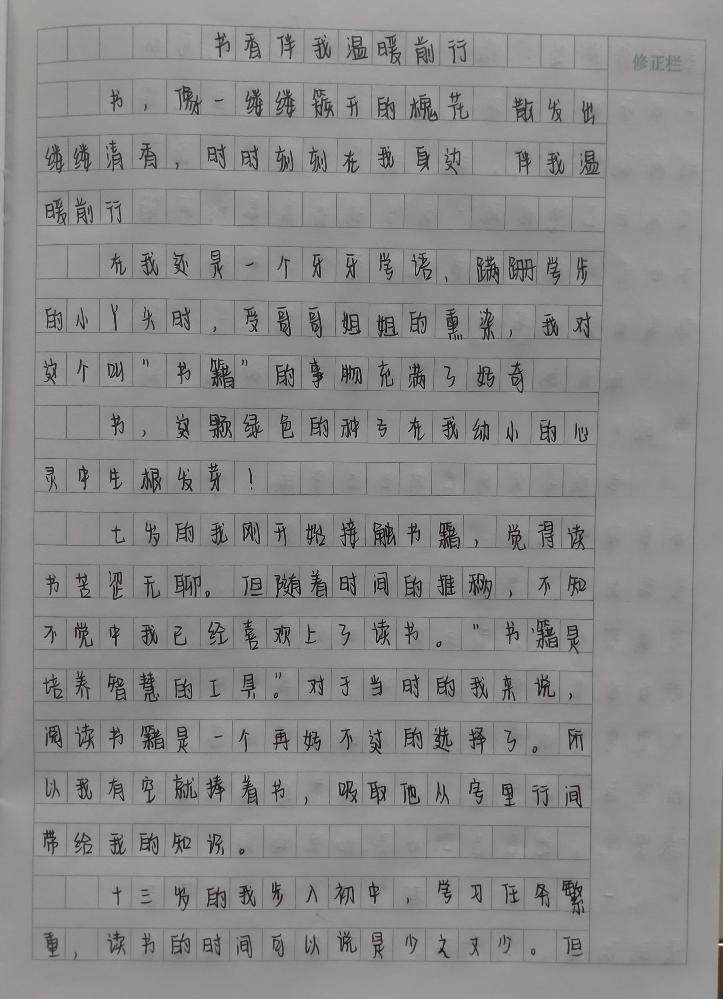 书香伴我温暖前行
修正栏
书，像一缕缕簇开的槐花 散发出
缕缕清香，时时刻刻在我身边 伴我温
暖前行
在我还是一个牙牙学语、蹒跚学步
的小丫头时，受哥哥姐姐的熏染，我对
这个叫“书籍”的事物充满了好奇
书，这颗绿色的种子在我幼小的心
灵中生根发芽！
七岁的我刚开始接触书籍，觉得读
书苦涩无聊。但随着时间的推移，不知
不觉中我已经喜欢上了读书。“书籍是
培养智慧的工具。”对于当时的我来说，
阅读书籍是一个再好不过的选择了。所
以我有空就捧着书，吸取他从字里行间
带给我的知识。
十三岁的我步入初中，学习任务繁
重，读书的时间可以说是少之又少。但